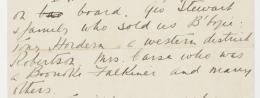 on board. Geo Stewart
& family who sold us B'
Tony Hordern a western district
Robertson, Mrs. Carsa who was
a Boonoke Falkiner and many
others.